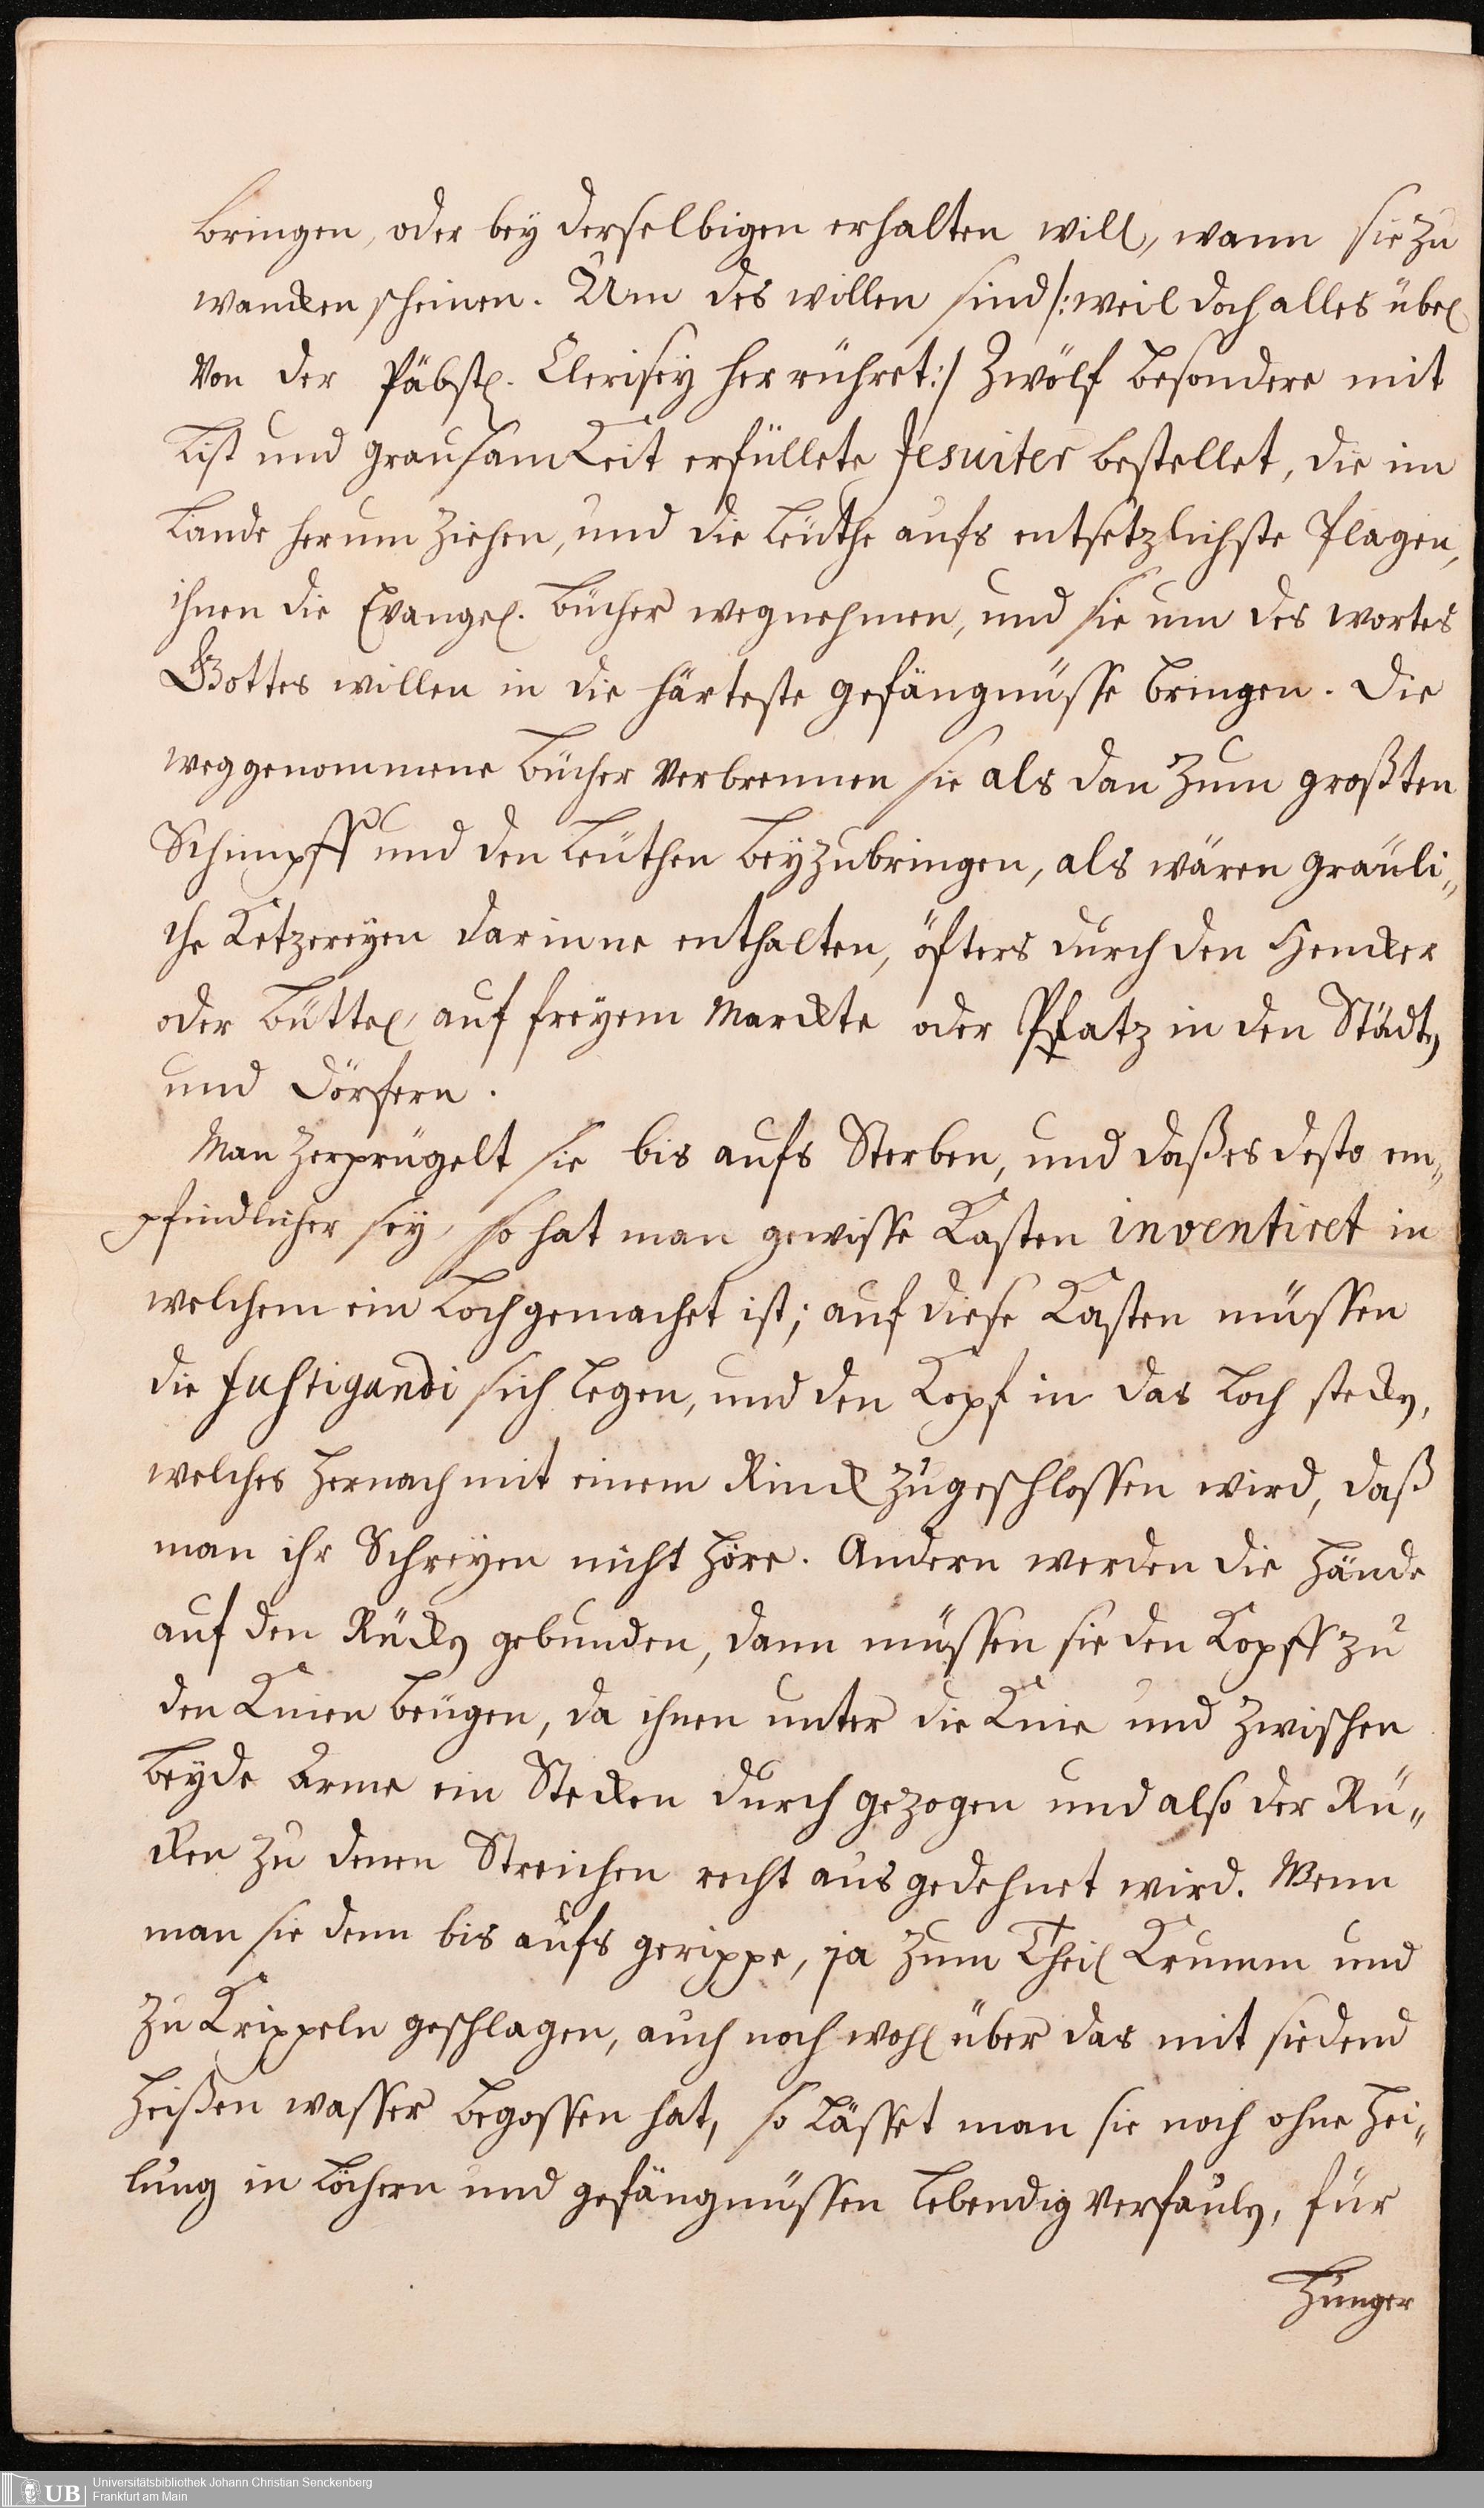 bringen, oder bey derselbigen erhalten will, wann sie zu
wancken scheinen. Um des willen sind /: weil doch alles übel
von der Päbstl. Clerisey herrühret :/ Zwölf besondere mit
List und grausamkeit erfüllete Jesuiter bestellet, die im
Lande herum ziehen, und die Leüthe aufs entsetzlichste Plagen,
ihnen die Evangel. Bücher wegnehmen, und sie um des wortes
Gottes willen in die härteste gefängnüsse bringen. Die
weggenommene Bücher verbrennen sie als dan zum großten
Schimpff und den Leüthen beyzubringen, als wären gräuli„
che Ketzereyen darinne enthalten, öfters durch den Hencker
oder Büttel, auf freyem Marckte oder Platz in den Städten
und Dörfern.
Man zerprügelt sie bis aufs Sterben, und daß es desto em„
pfindlicher sey, so hat man gewisse Kasten inventiret in
welchem ein Loch gemachet ist; auf diese Kasten müssen
die fustigandi sich legen, und den Kopf in das Loch stecken,
welches hernach mit einem Rinck zugeschlossen wird, daß
man ihr Schreyen nicht höre. Andern werden die Hände
auf den Rücken gebunden, dann müssen sie den Kopff zu
den Knien beügen, da ihnen unter die Knie und zwischen
beyde Arme ein Stecken durch gezogen und also der Rü„
cken zu denen Streichen recht ausgedehnet wird. Wenn
man sie denn bis aufs gerippe, ja zum Theil Krumm und
zu Krippeln geschlagen, auch noch wohl über das mit siedend
heißen wasser begossen hat, so lässet man sie noch ohne Hei„
lung in Löchern und gefängnüssen lebendig verfaulen, für
Hunger
Universitätsbibliothek Johann Christian Senckenberg
UB
Frankfurt am Main